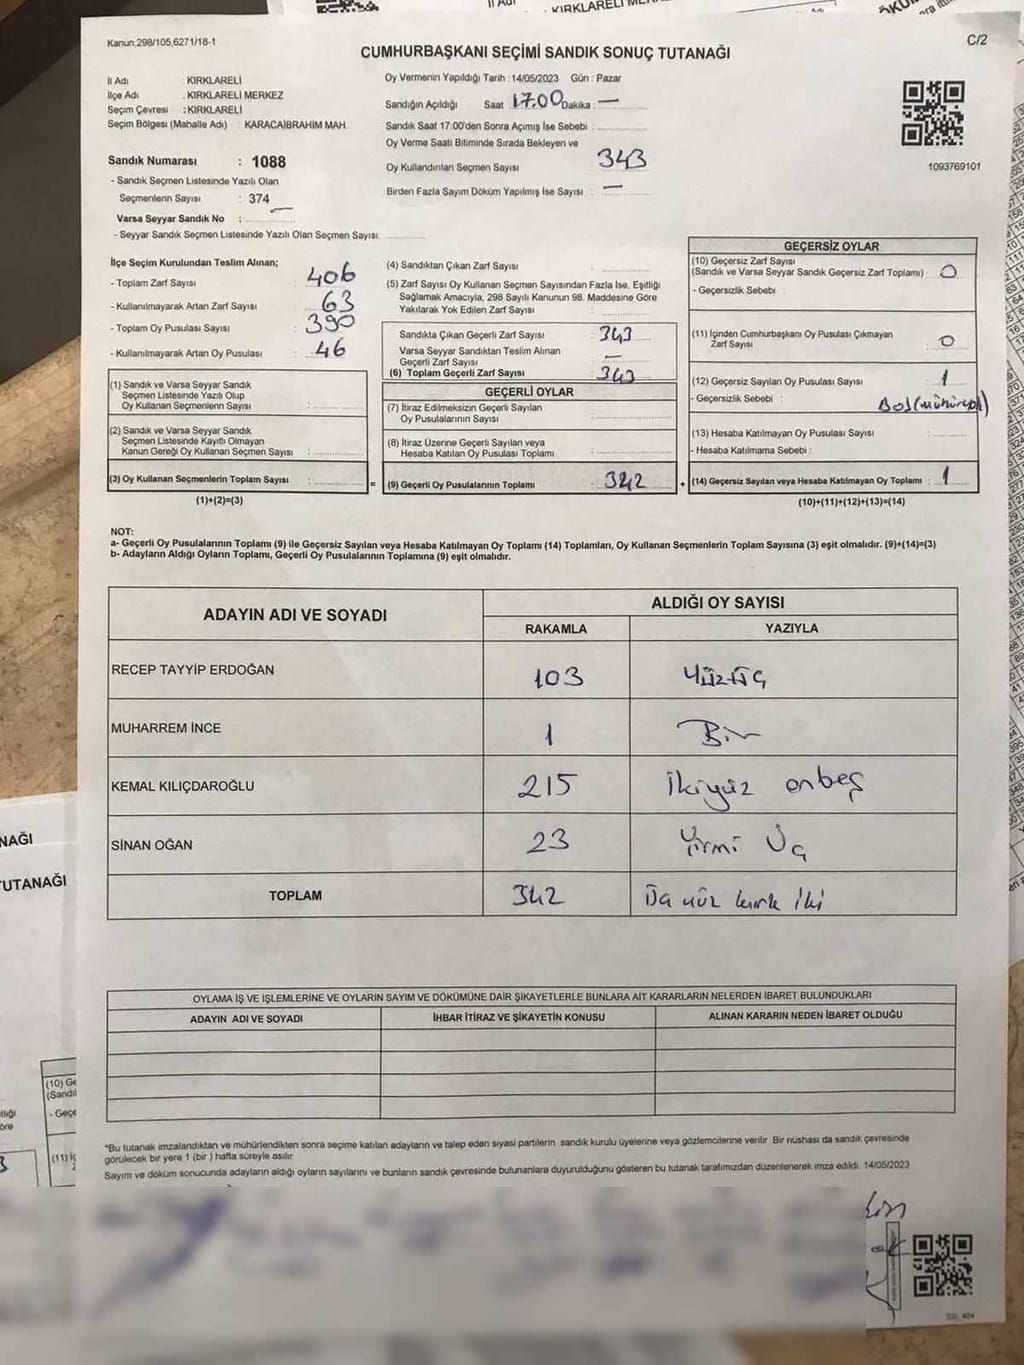 Kanun.298/105,6271/18-1
C/2
CUMHURBAŞKANI SEÇİMİ SANDIK SONUÇ TUTANAĞI
İl Adı : KIRKLARELİ
İlçe Adı : KIRKLARELİ MERKEZ
Seçim Çevresi : KIRKLARELİ
Seçim Bölgesi (Mahalle Adı) : KARACAİBRAHİM MAH.
Sandık Numarası : 1088
- Sandık Seçmen Listesinde Yazılı Olan
Seçmenlerin Sayısı : 374
Varsa Seyyar Sandık No : —
- Seyyar Sandık Seçmen Listesinde Yazılı Olan Seçmen Sayısı:
Oy Vermenin Yapıldığı Tarih :14/05/2023 Gün : Pazar
Sandığın Açıldığı Saat 17.00 Dakika : —
Sandık Saat 17:00'den Sonra Açımış İse Sebebi :
Oy Verme Saati Bitiminde Sırada Bekleyen ve
Oy Kullandırılan Seçmen Sayısı : 343
Birden Fazla Sayım Döküm Yapılmış İse Sayısı : —
1093769101
İlçe Seçim Kurulundan Teslim Alınan;
- Toplam Zarf Sayısı : 406
- Kullanılmayarak Artan Zarf Sayısı : 63
- Toplam Oy Pusulası Sayısı : 390
- Kullanılmayarak Artan Oy Pusulası : 46
(1) Sandık ve Varsa Seyyar Sandık
Seçmen Listesinde Yazılı Olup
Oy Kullanan Seçmenlerin Sayısı :
(2) Sandık ve Varsa Seyyar Sandık
Seçmen Listesinde Kayıtlı Olmayan
Kanun Gereği Oy Kullanan Seçmen Sayısı :
(3) Oy Kullanan Seçmenlerin Toplam Sayısı :
(1)+(2)=(3)
(4) Sandıktan Çıkan Zarf Sayısı :
(5) Zarf Sayısı Oy Kullanan Seçmen Sayısından Fazla İse, Eşitliği
Sağlamak Amacıyla, 298 Sayılı Kanunun 98. Maddesine Göre
Yakılarak Yok Edilen Zarf Sayısı :
Sandıkta Çıkan Geçerli Zarf Sayısı : 343
Varsa Seyyar Sandıktan Teslim Alınan
Geçerli Zarf Sayısı : —
(6) Toplam Geçerli Zarf Sayısı : 343
GEÇERLİ OYLAR
(7) İtiraz Edilmeksizin Geçerli Sayılan
Oy Pusulalarının Sayısı :
(8) İtiraz Üzerine Geçerli Sayılan veya
Hesaba Katılan Oy Pusulası Toplamı :
= (9) Geçerli Oy Pusulalarının Toplamı : 342
GEÇERSİZ OYLAR
(10) Geçersiz Zarf Sayısı
(Sandık ve Varsa Seyyar Sandık Geçersiz Zarf Toplamı) : 0
- Geçersizlik Sebebi :
(11) İçinden Cumhurbaşkanı Oy Pusulası Çıkmayan
Zarf Sayısı : 0
(12) Geçersiz Sayılan Oy Pusulası Sayısı : 1
- Geçersizlik Sebebi : BOŞ
(13) Hesaba Katılmayan Oy Pusulası Sayısı :
- Hesaba Katılmama Sebebi :
+ (14) Geçersiz Sayılan veya Hesaba Katılmayan Oy Toplamı : 1
(10)+(11)+(12)+(13)=(14)
NOT:
a- Geçerli Oy Pusulalarının Toplamı (9) ile Geçersiz Sayılan veya Hesaba Katılmayan Oy Toplamı (14) Toplamları, Oy Kullanan Seçmenlerin Toplam Sayısına (3) eşit olmalıdır. (9)+(14)=(3)
b- Adayların Aldığı Oyların Toplamı, Geçerli Oy Pusulalarının Toplamına (9) eşit olmalıdır.
ADAYIN ADI VE SOYADI
ALDIĞI OY SAYISI
RAKAMLA YAZIYLA
RECEP TAYYİP ERDOĞAN 103 Yüzüç
MUHARREM İNCE 1 Bir
KEMAL KILIÇDAROĞLU 215 İkiyüz onbeş
SİNAN OĞAN 23 Yirmi Üç
TOPLAM 342 Üç yüz kırk iki
OYLAMA İŞ VE İŞLEMLERİNE VE OYLARIN SAYIM VE DÖKÜMÜNE DAİR ŞİKAYETLERLE BUNLARA AİT KARARLARIN NELERDEN İBARET BULUNDUKLARI
ADAYIN ADI VE SOYADI İHBAR İTİRAZ VE ŞİKAYETİN KONUSU ALINAN KARARIN NEDEN İBARET OLDUĞU
*Bu tutanak imzalandıktan ve mühürlendikten sonra seçime katılan adayların ve talep eden siyasi partilerin sandık kurulu üyelerine veya gözlemcilerine verilir .Bir nüshası da sandık çevresinde
görülecek bir yere 1 (bir ) hafta süreyle asılır.
Sayım ve döküm sonucunda adayların aldığı oyların sayılarını ve bunların sandık çevresinde bulunanlara duyurulduğunu gösteren bu tutanak tarafımızdan düzenlenerek imza edildi. 14/05/2023
KIRKLARELİ
NAĞI
TUTANAĞI
(10) Ge
(Sandıl
- Geçe
(11) İç